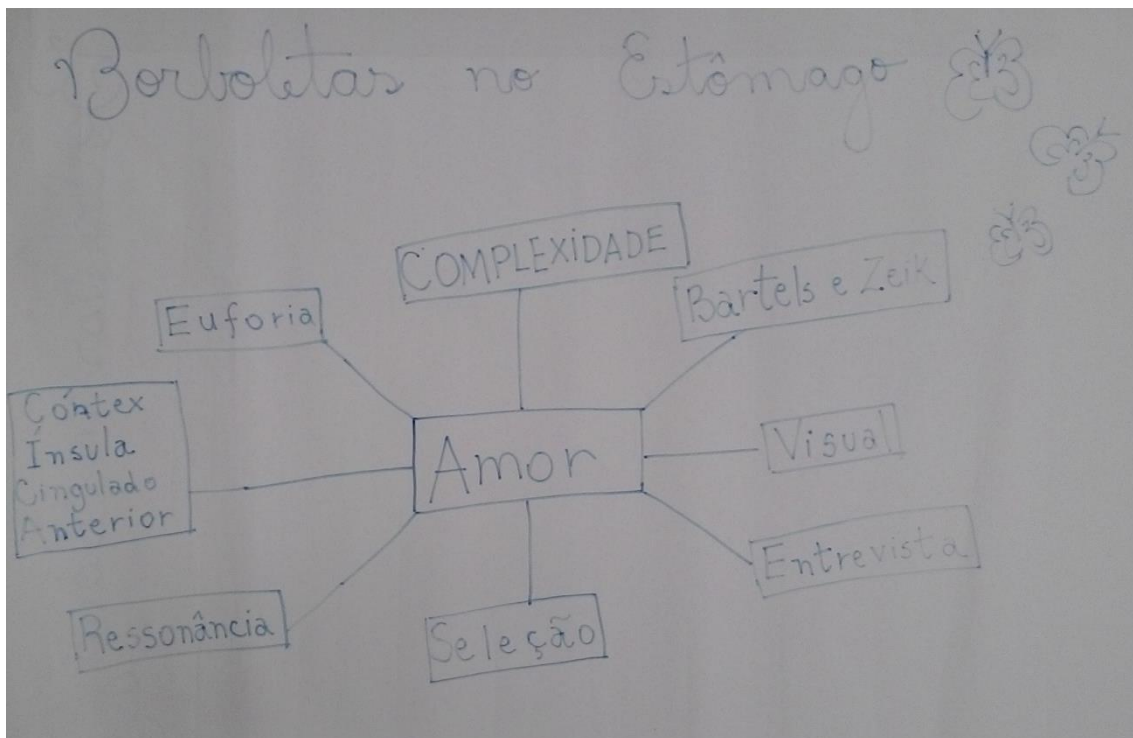 Borboletas no Estômago
COMPLEXIDADE
Bartels e Zeik
Euforia
Córtex
Ínsula
Cingulado
Anterior
Amor
Visual
Entrevista
Ressonância
Seleção